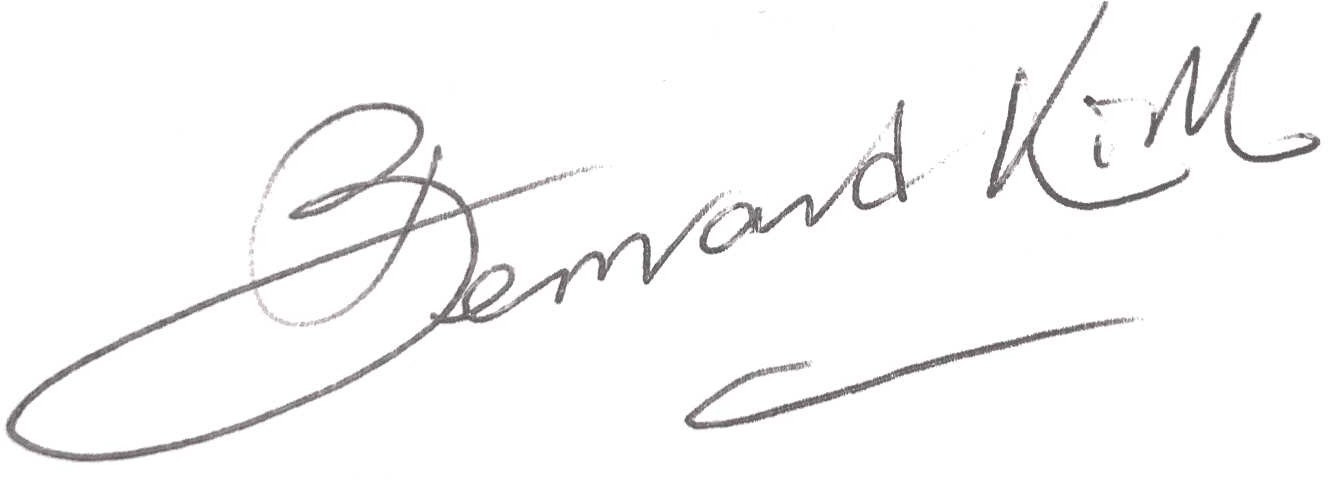 Bernard Kim